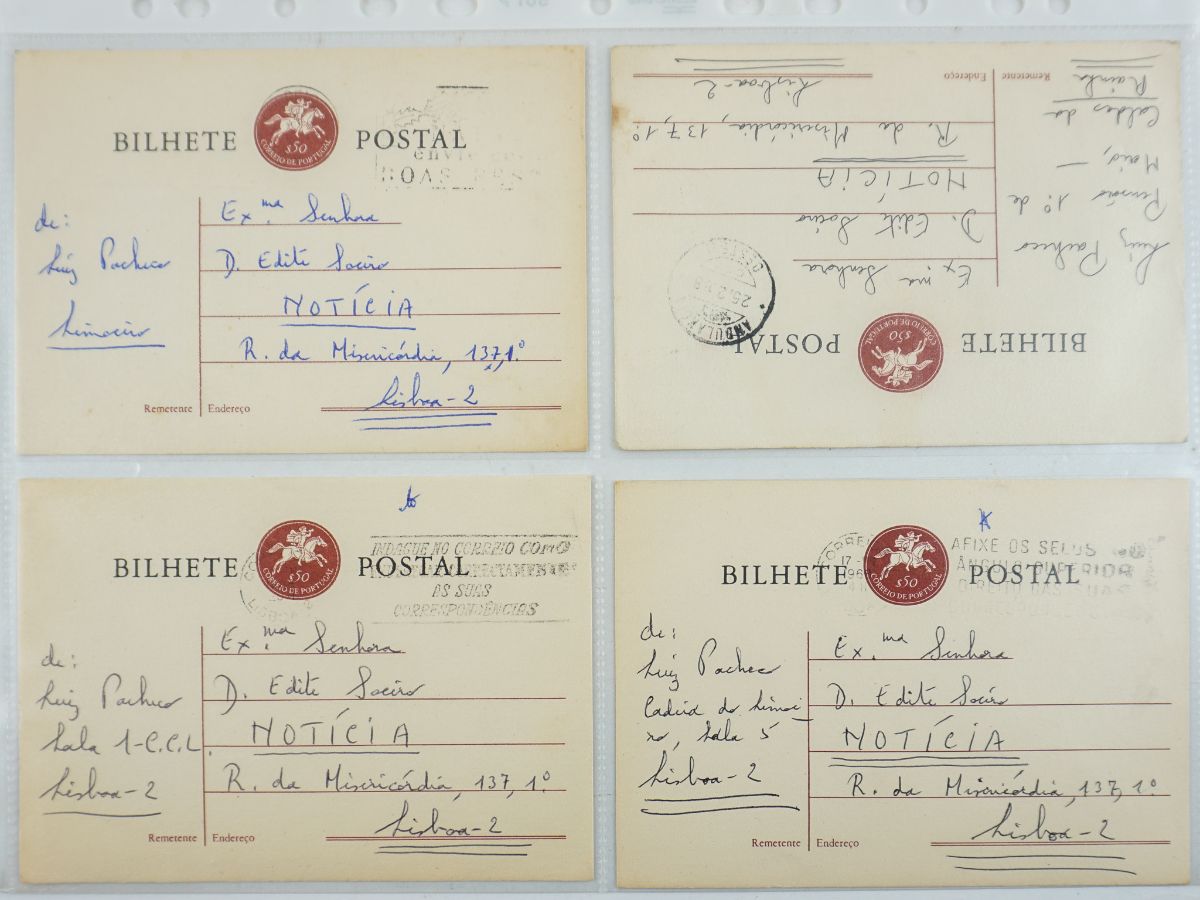 BILHETE POSTAL
s50
CORREIO DE PORTUGAL
BOAS
de:
Luiz Pacheco
Limoeiro
Ex.ma Senhora
D. Edite Soeiro
NOTÍCIA
R. da Misericórdia, 137, 1.º
Lisboa-2
Remetente Endereço
BILHETE POSTAL
s50
CORREIO DE PORTUGAL
Ex.ma Senhora
D. Edite Soeiro
NOTÍCIA
R. da Misericórdia, 137, 1.º
Lisboa-2
Luiz Pacheco
Pensão 1.º de
Maio, —
Caldas da
Rainha
Remetente Endereço
BILHETE POSTAL
s50
CORREIO DE PORTUGAL
INDAGUE NO CORREIO COMO
AS SUAS
CORRESPONDÊNCIAS
de:
Luiz Pacheco
Sala 1-C.C.L.
Lisboa-2
Ex.ma Senhora
D. Edite Soeiro
NOTÍCIA
R. da Misericórdia, 137, 1.º
Lisboa-2
Remetente Endereço
BILHETE POSTAL
s50
CORREIO DE PORTUGAL
AFIXE OS SELOS NO
ÂNGULO SUPERIOR
DIREITO DAS SUAS
de:
Luiz Pacheco
Cadeia do Limoei-
ro, Sala 5
Lisboa-2
Ex.ma Senhora
D. Edite Soeiro
NOTÍCIA
R. da Misericórdia, 137, 1.º
Lisboa-2
Remetente Endereço